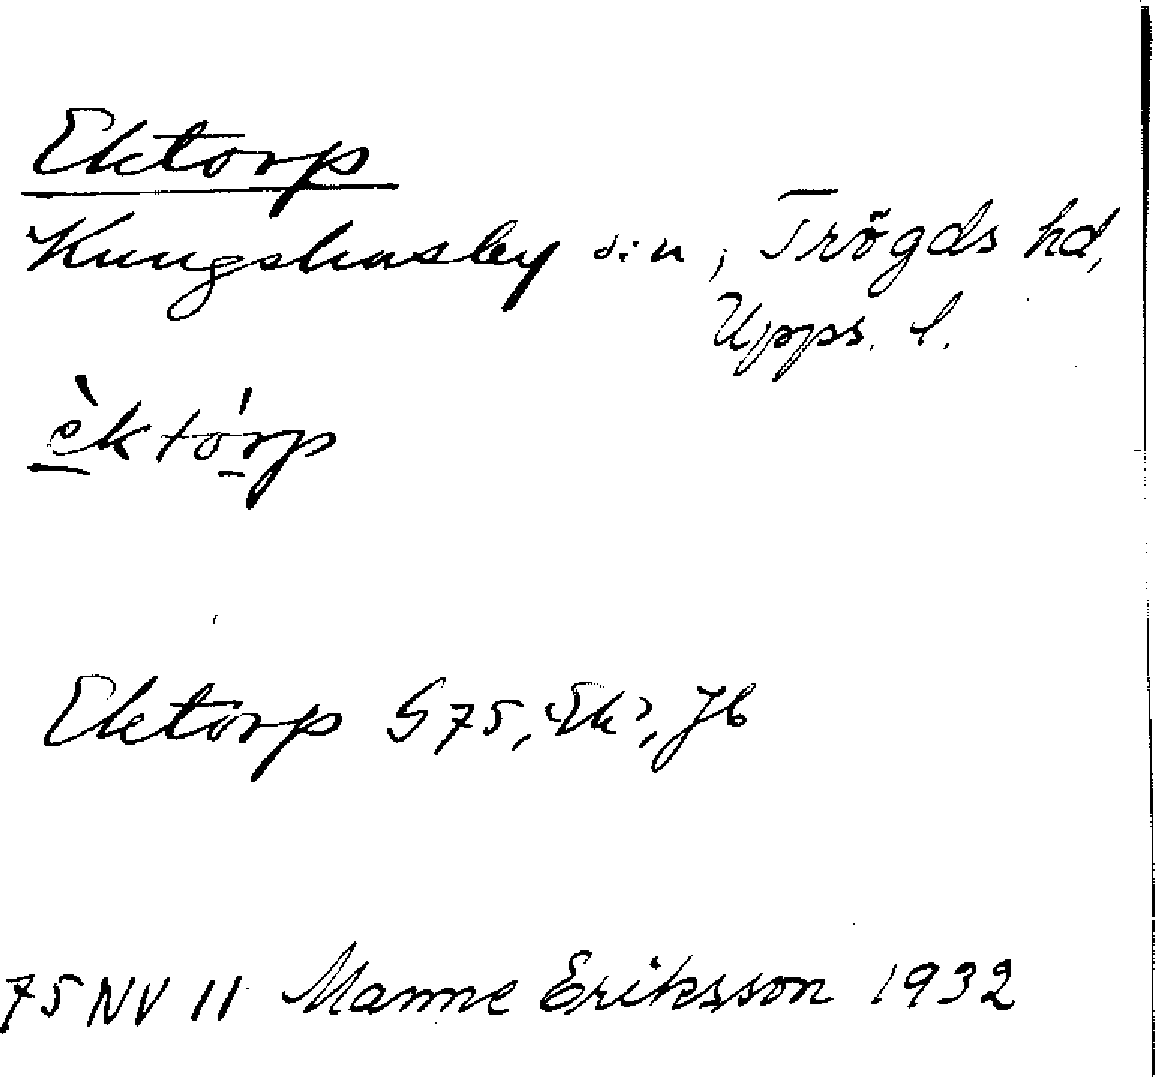 Ektorp
Kungshusby s:n, Trögds hd,
Upps. l.
èktórp
Ektorp G75, Ek, Jb
75 NV 11 Manne Eriksson 1932